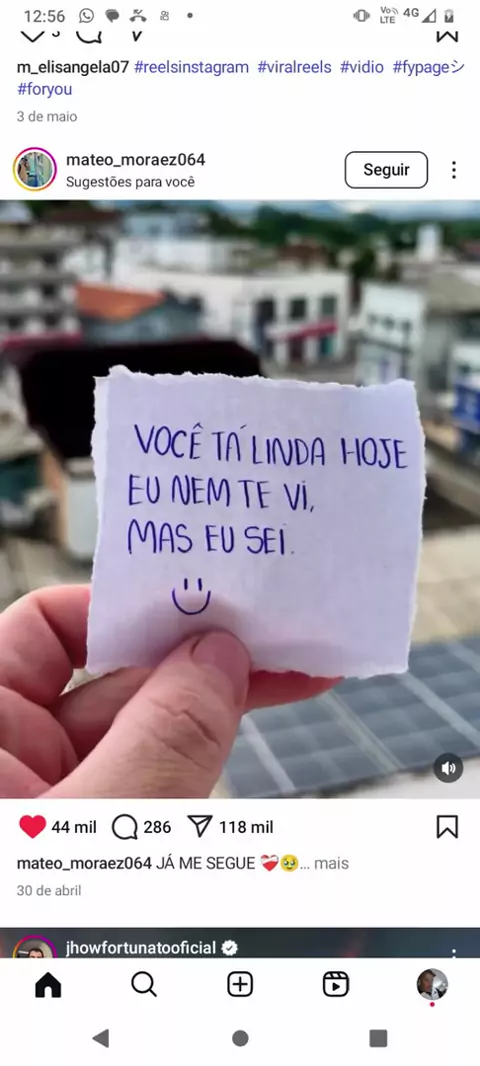 12:56 Vo LTE 4G
m_elisangela07 #reelsinstagram #viralreels #vidio #fypageシ
#foryou
3 de maio
mateo_moraez064
Sugestões para você
Seguir
VOCÊ TÁ LINDA HOJE
EU NEM TE VI,
MAS EU SEI.
44 mil 286 118 mil
mateo_moraez064 JÁ ME SEGUE ❤️‍🩹🥹... mais
30 de abril
jhowfortunatooficial